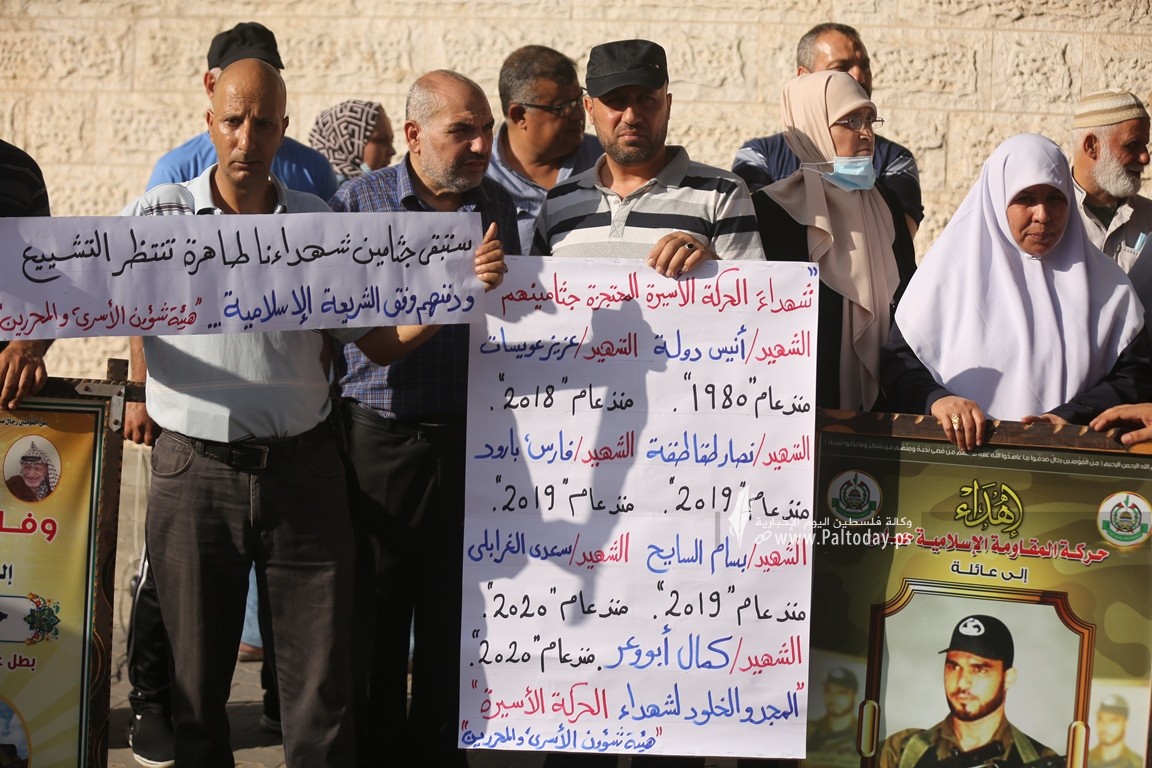 ستبقى جثامين شهداءنا طاهرة تنتظر التشييع
ودفنهم وفق الشريعة الإسلامية...
"هيئة شؤون الأسرى والمحررين"
"شهداء الحركة الأسيرة المحتجزة جثامينهم"
الشهيد/ أنيس دولة الشهيد/ عزيز عويسات
منذ عام "1980". منذ عام "2018".
الشهيد/ نصار طقاطقة الشهيد/ فارس بارود
منذ عام "2019". منذ عام "2019".
الشهيد/ بسام السايح الشهيد/ سعدي الغرابلي
منذ عام "2019". منذ عام "2020".
الشهيد/ كمال أبو وعر. منذ عام "2020".
"المجد والخلود لشهداء الحركة الأسيرة"
"هيئة شؤون الأسرى والمحررين"
إهداء
حركة المقاومة الإسلامية حماس
إلى عائلة
وكالة فلسطين اليوم الإخبارية
www.Paltoday.ps